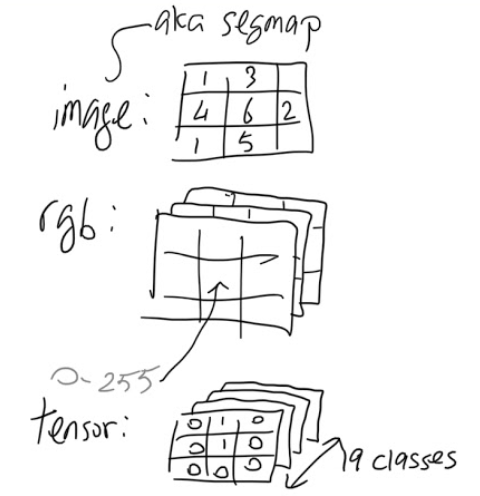 aka segmap
image:
1 3
4 6 2
1 5
rgb:
0-255
tensor:
0 1 0
0 1 0
0 0 0
19 classes